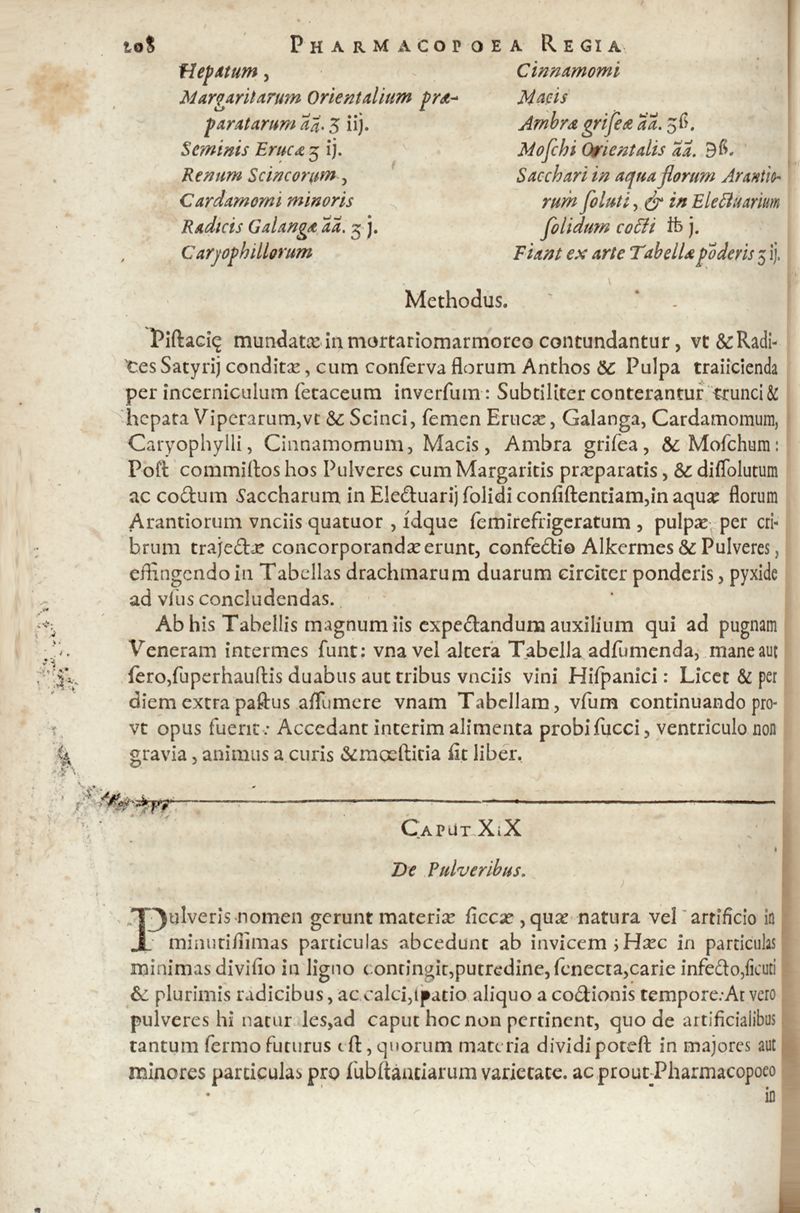 208 PHARMACOPOEA REGIA
Hepatum,
Margaritarum Orientalium præ-
paratarum aā. ʒ iij.
Seminis Erucæ ʒ ij.
Renum Scincorum,
Cardamomi minoris
Radicis Galangæ aā. ʒ j.
Caryophillorum
Cinnamomi
Macis
Ambræ griſeæ aā. ʒß.
Moſchi Orientalis aā. ℈ß.
Sacchari in aqua florum Arantio-
rum ſoluti, & in Electuarium
ſolidum cocti ℔ j.
Fiant ex arte Tabellæ pōderis ʒ ij.
Methodus.
Piſtacię mundatæ in mortario marmoreo contundantur, vt & Radi-
ces Satyrij conditæ, cum conſerva florum Anthos & Pulpa traiicienda
per incerniculum ſetaceum inverſum: Subtiliter conterantur trunci &
hepata Viperarum, vt & Scinci, ſemen Erucæ, Galanga, Cardamomum,
Caryophylli, Cinnamomum, Macis, Ambra griſea, & Moſchum:
Poſt commiſtos hos Pulveres cum Margaritis præparatis, & diſſolutum
ac coctum Saccharum in Electuarij ſolidi conſiſtentiam, in aquæ florum
Arantiorum vnciis quatuor, idque ſemirefrigeratum, pulpæ per cri-
brum trajectæ concorporandæ erunt, confectio Alkermes & Pulveres,
effingendo in Tabellas drachmarum duarum circiter ponderis, pyxide
ad vſus concludendas.
Ab his Tabellis magnum iis expectandum auxilium qui ad pugnam
Veneram intermes ſunt: vna vel altera Tabella adſumenda, mane aut
ſero, ſuperhauſtis duabus aut tribus vnciis vini Hiſpanici: Licet & per
diem extra paſtus aſſumere vnam Tabellam, vſum continuando pro-
vt opus fuerit: Accedant interim alimenta probi ſucci, ventriculo non
gravia, animus a curis & mœſtitia ſit liber.
CAPUT XIX
De Pulveribus.
Pulveris nomen gerunt materiæ ſiccæ, quæ natura vel artificio in
minutiſſimas particulas abcedunt ab invicem; Hæc in particulas
minimas diviſio in ligno contingit, putredine, ſenecta, carie infecto, ſicuti
& plurimis radicibus, ac calci, ſpatio aliquo a coctionis tempore: At vero
pulveres hi naturales, ad caput hoc non pertinent, quo de artificialibus
tantum ſermo futurus eſt, quorum materia dividi poteſt in majores aut
minores particulas pro ſubſtantiarum varietate. ac prout Pharmacopoeo
in